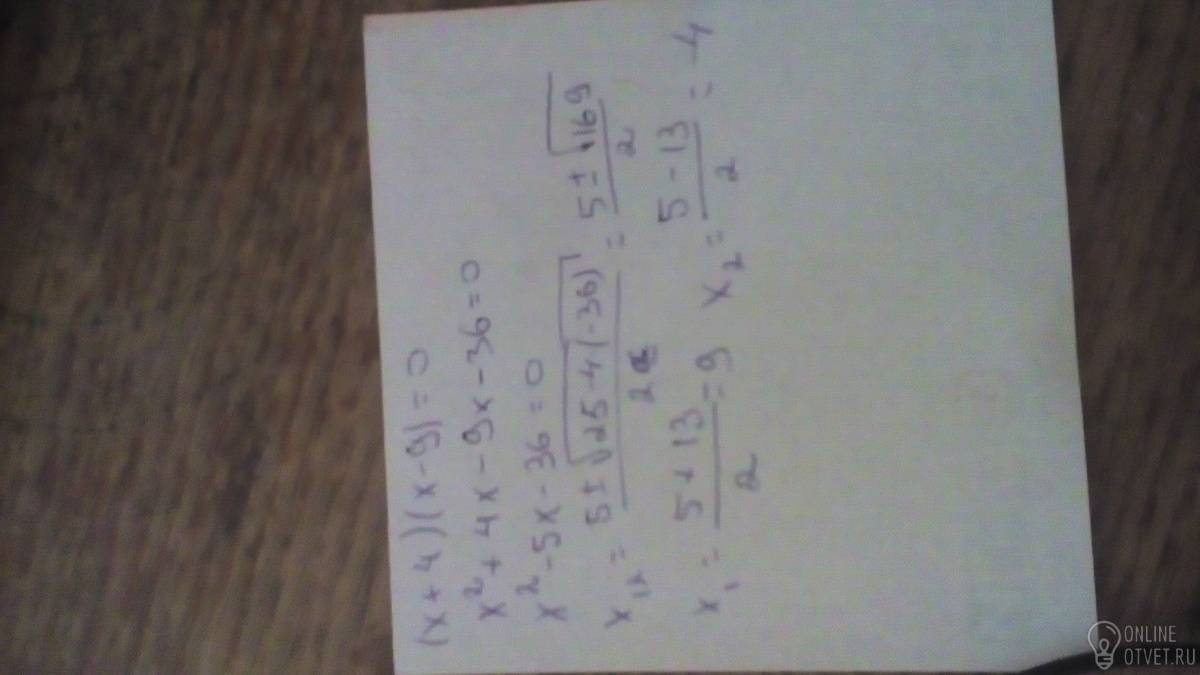 (x+4)(x-9)=0
x²+4x-9x-36=0
x²-5x-36=0
x₁,₂ = (5±√(25-4(-36)))/2 = (5±√169)/2
x₁ = (5+13)/2 = 9 x₂ = (5-13)/2 = -4
ONLINE
OTVET.RU